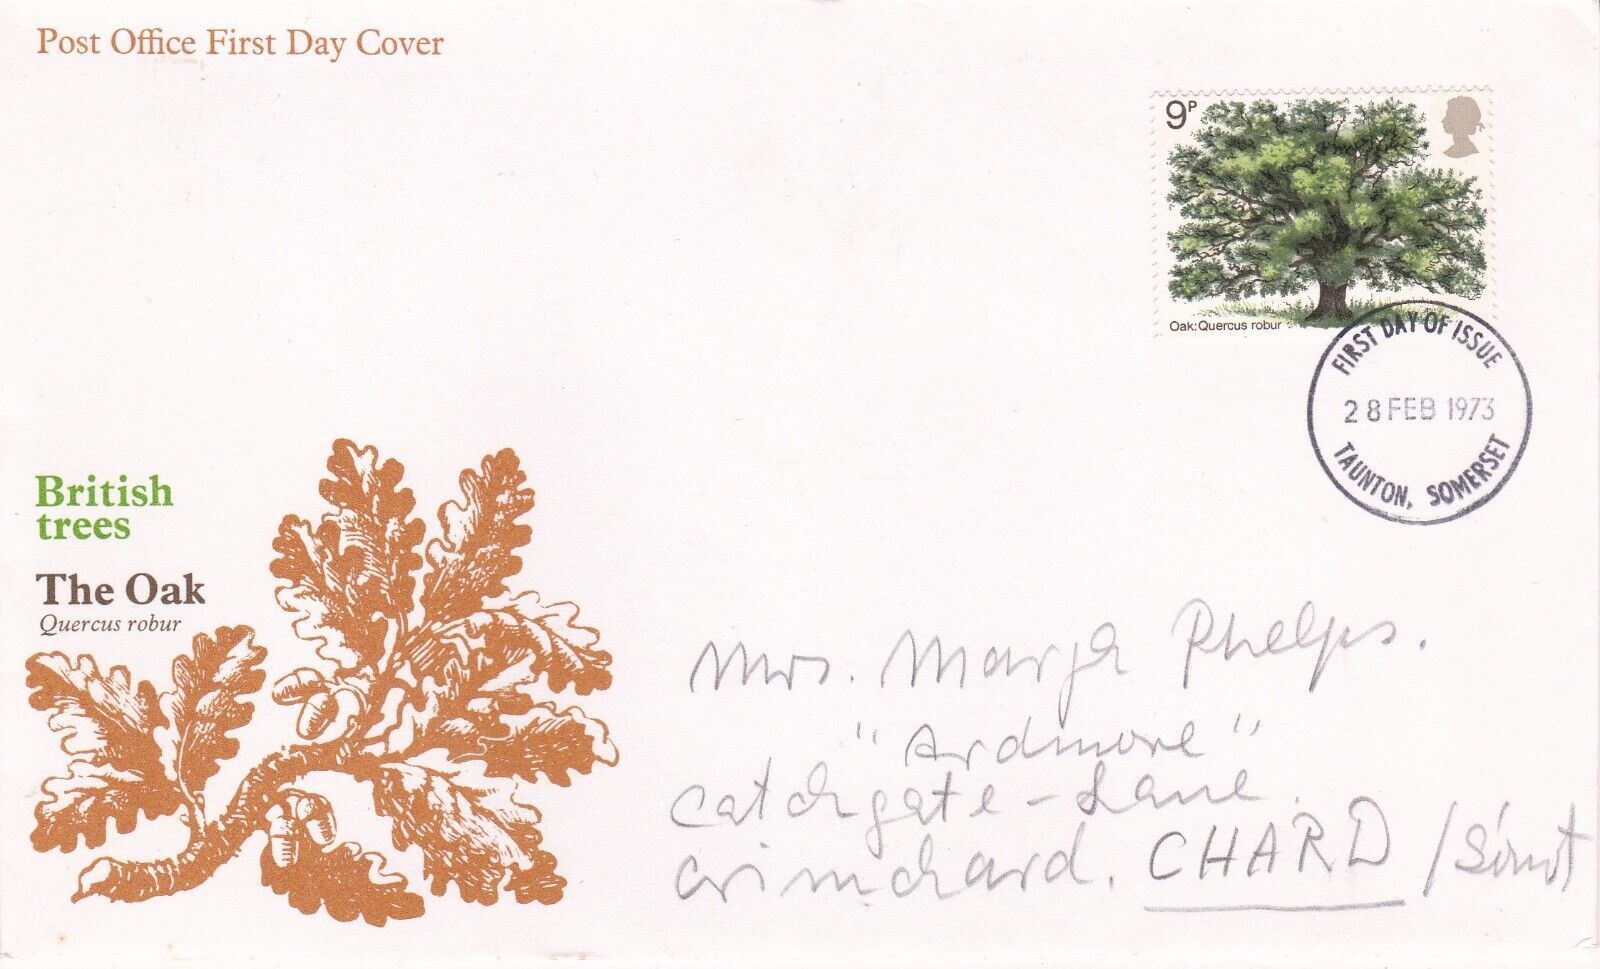 Post Office First Day Cover
9P
Oak:Quercus robur
FIRST DAY OF ISSUE
28 FEB 1973
TAUNTON, SOMERSET
British
trees
The Oak
Quercus robur
Mrs. Marja Phelps.
"Ardmore"
Catchgate-Lane.
Crimchard. CHARD /Somst